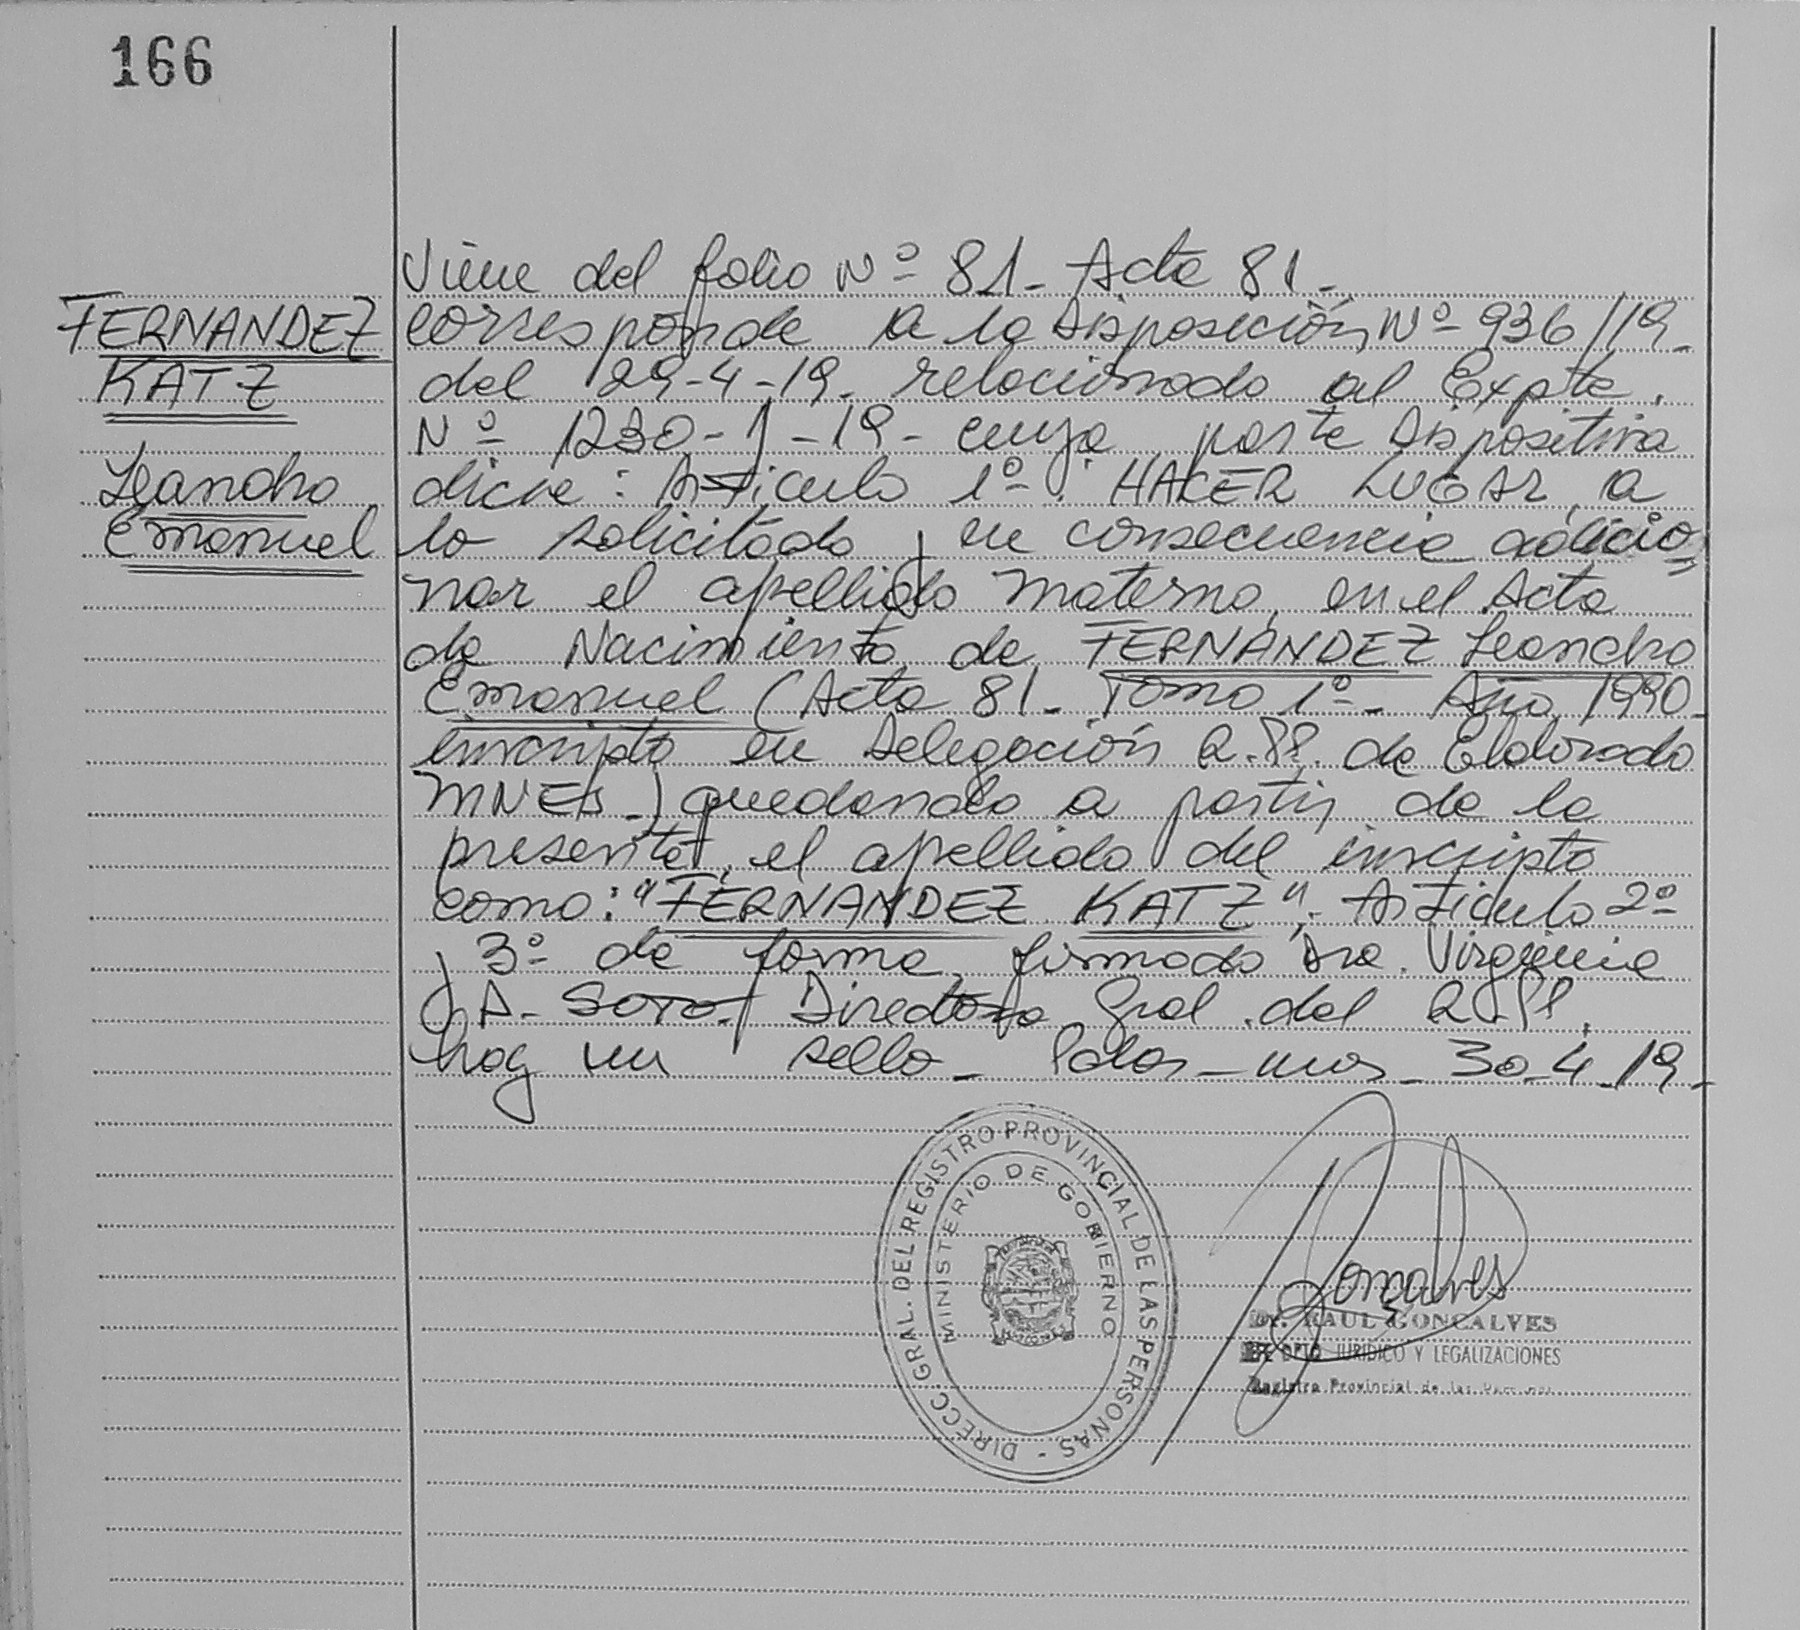 166
FERNANDEZ
KATZ
Leandro
Emanuel
Viene del folio Nº 81 - Acta 81 -
corresponde a la Disposición Nº 936/19 -
del 29-4-19 - relacionado al Expte.
Nº 1230-J-19 - cuya parte dispositiva
dice: Articulo 1º: HACER LUGAR a
lo solicitado y en consecuencia adicio
nar el apellido materno, en el Acta
de Nacimiento de FERNANDEZ Leandro
Emanuel (Acta 81 - Tomo 1º - Año 1990 -
inscripto en Delegación R.PP. de Eldorado
MNES -) quedando a partir de la
presente, el apellido del inscripto
como: "FERNANDEZ KATZ". Articulo 2º
y 3º de forma, firmado Dra. Virginia
A. SOTO. Directora Gral. del R.PP.
hay un sello - Pdas - mnes - 30-4-19 -
DIRECC. GRAL. DEL REGISTRO PROVINCIAL DE LAS PERSONAS -
MINISTERIO DE GOBIERNO
Gonçalves
Dr. RAUL GONCALVES
DPTO JURIDICO Y LEGALIZACIONES
Registro Provincial de las Personas